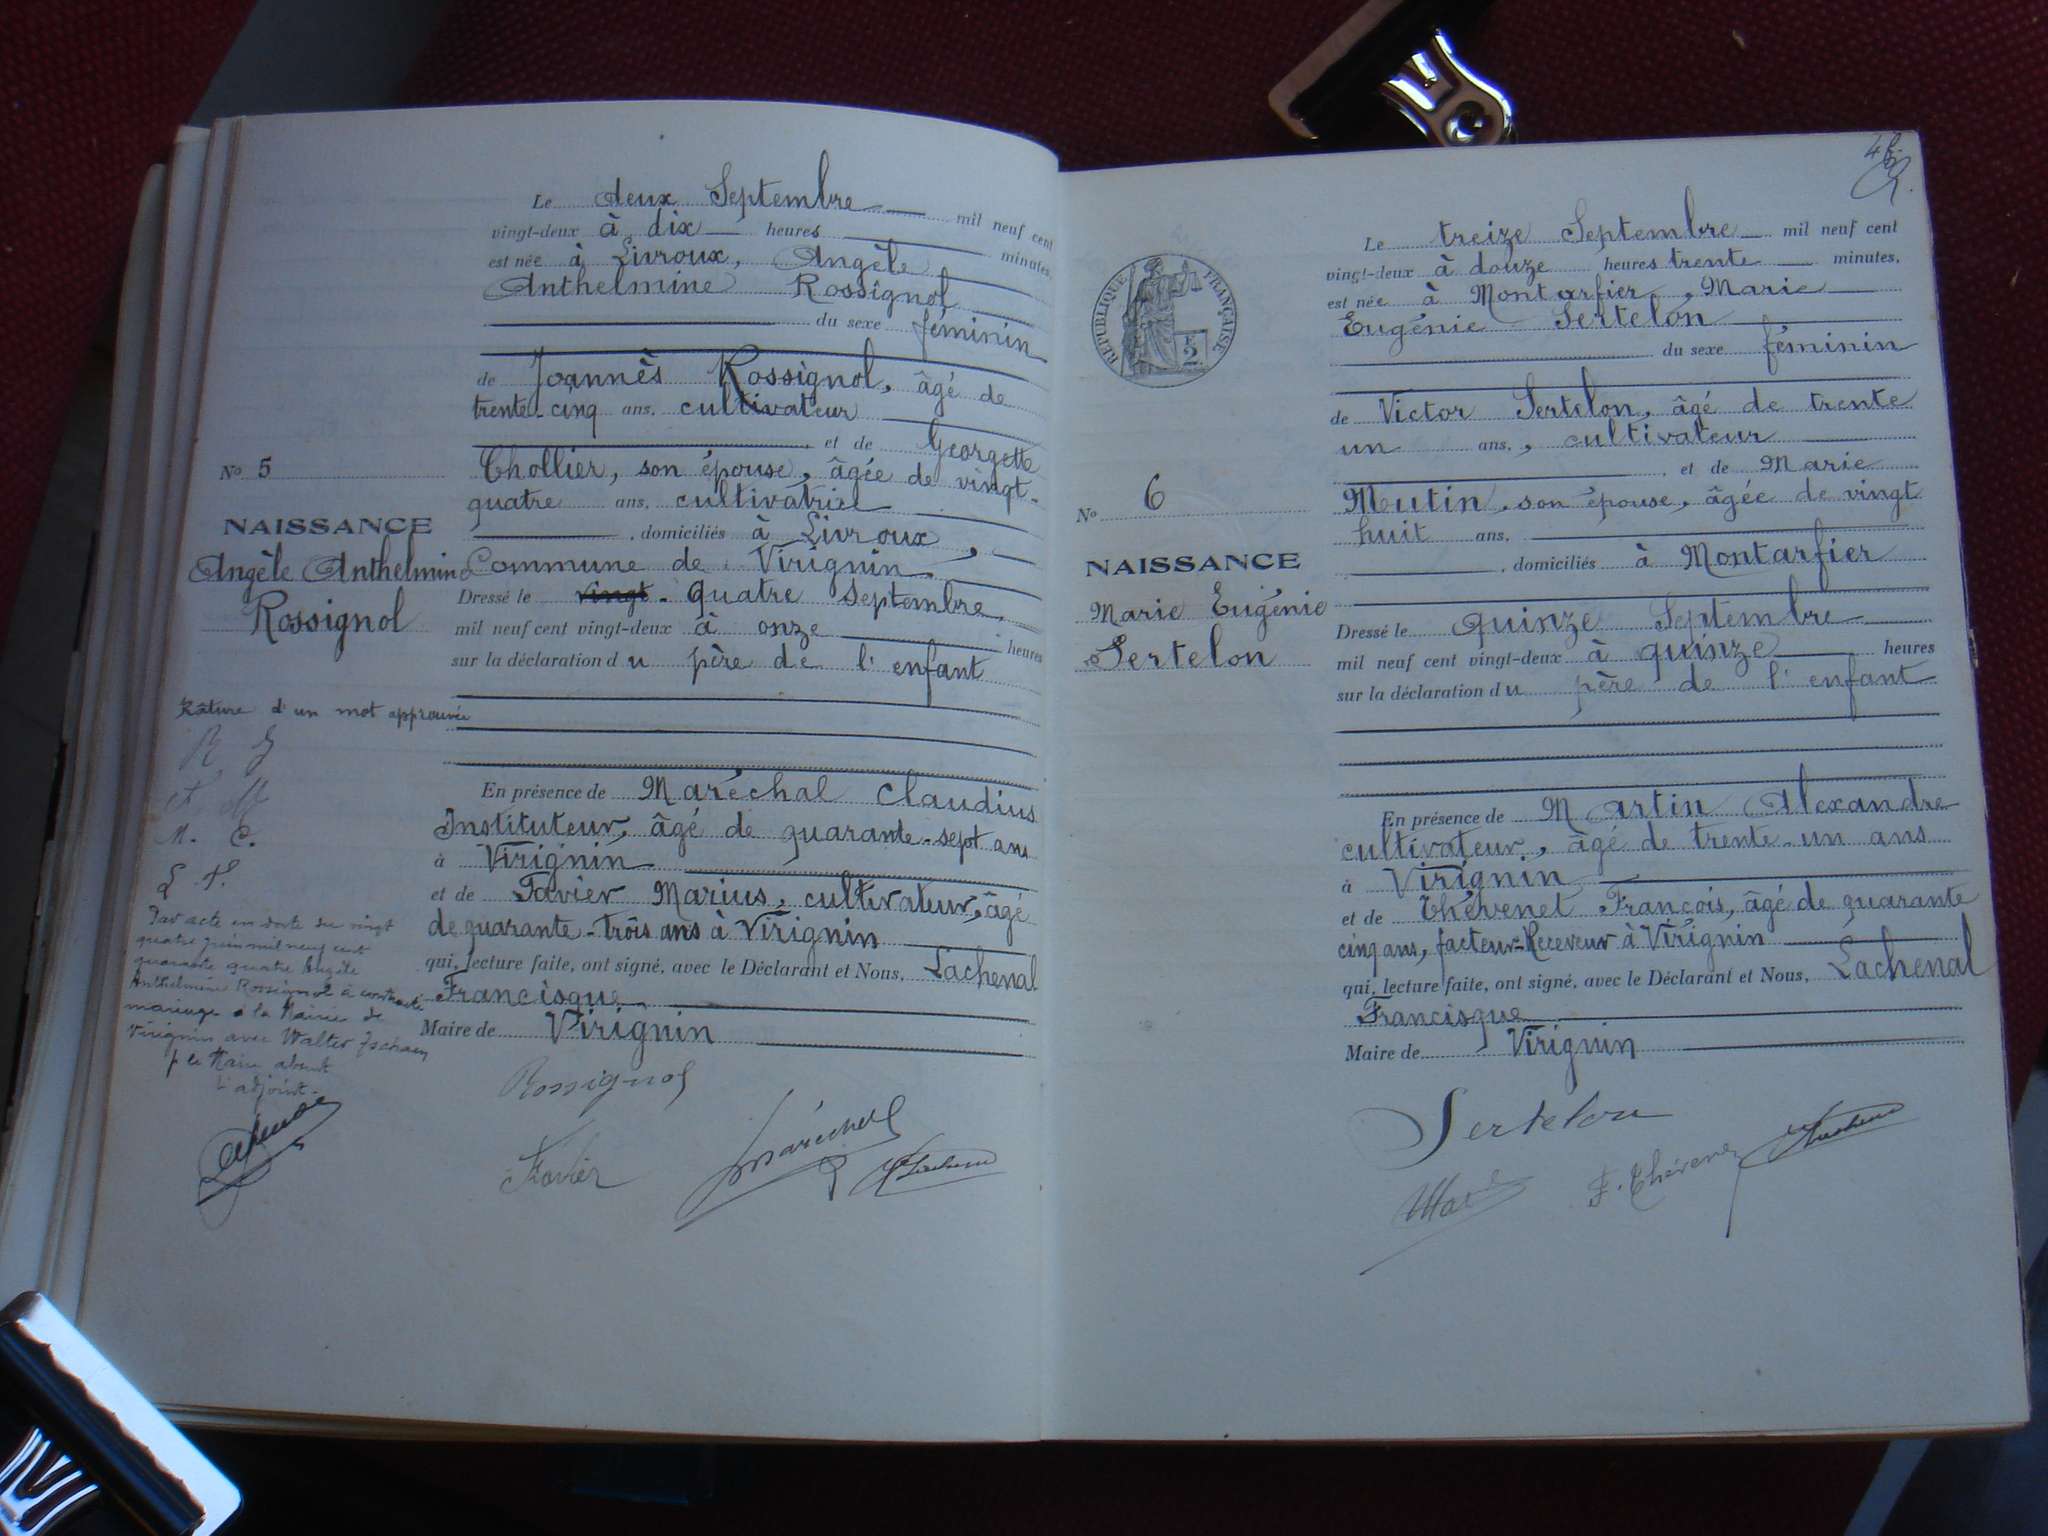 Le deux Septembre mil neuf cent
vingt-deux à dix heures minutes,
est née à Livroux, Angèle
Anthelmine Rossignol
du sexe féminin
de Joannès Rossignol, âgé de
trente-cinq ans, cultivateur
et de Georgette
Thollier, son épouse, âgée de vingt-
quatre ans, cultivatrice
, domiciliés à Livroux,
Commune de Virignin.
Dressé le vingt-quatre septembre,
mil neuf cent vingt-deux à onze heures
sur la déclaration du père de l'enfant
En présence de Maréchal Claudius
Instituteur, âgé de quarante-sept ans
à Virignin
et de Favier Marius, cultivateur, âgé
de quarante-trois ans à Virignin
qui, lecture faite, ont signé, avec le Déclarant et Nous, Lachenal
Francisque
Maire de Virignin
Rossignol
Favier
Maréchal
No 5
NAISSANCE
Angèle Anthelmine
Rossignol
Râture d'un mot approuvée
R J
F M
M. C.
L F.
Par acte en date du vingt
quatre juin mil neuf cent
quarante quatre Angèle
Anthelmine Rossignol a contracté
mariage à la Mairie de
Virignin avec Walter
p le Maire absent
L'adjoint.
Le treize Septembre mil neuf cent
vingt-deux à douze heures trente minutes,
est née à Montarfier, Marie
Eugénie Sertelon
du sexe féminin
de Victor Sertelon, âgé de trente
un ans, cultivateur
et de Marie
Mutin, son épouse, âgée de vingt
huit ans,
, domiciliés à Montarfier
Dressé le quinze Septembre
mil neuf cent vingt-deux à quinze heures
sur la déclaration du père de l'enfant
En présence de Martin Alexandre
cultivateur, âgé de trente-un ans
à Virignin
et de Thévenet François, âgé de quarante
cinq ans, facteur-Receveur à Virignin
qui, lecture faite, ont signé, avec le Déclarant et Nous, Lachenal
Francisque
Maire de Virignin
Sertelon
F. Thévenet
RÉPUBLIQUE FRANÇAISE
2 F
No 6
NAISSANCE
Marie Eugénie
Sertelon